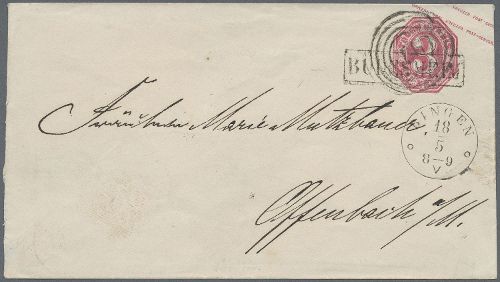 3
BINGEN
18
5
8–9
V
Fräulein Marie Mutzbauer,
Offenbach a/M.